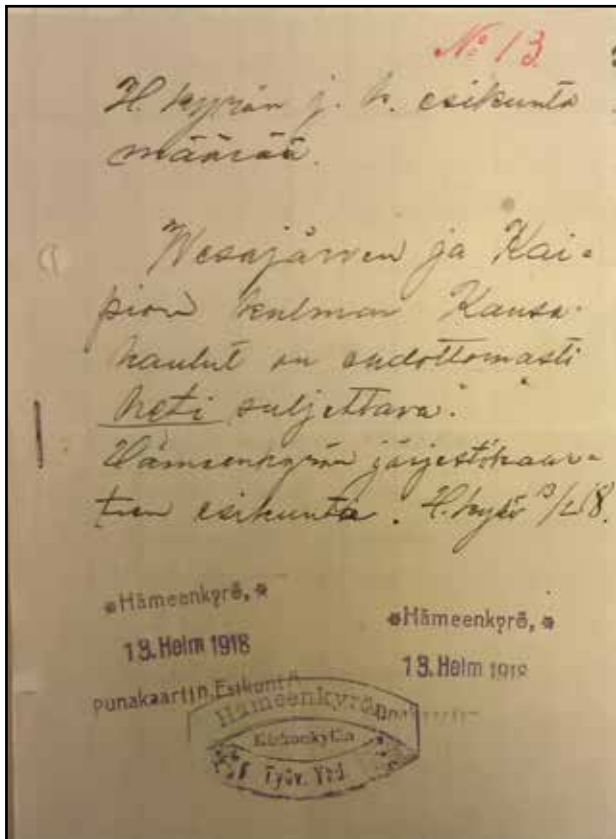 No 13.
H. kyrön j. k. esikunta
määrää.
Wesajärven ja Kai-
pion kulman Kansa-
koulut on ehdottomasti
heti suljettava.
Hämeenkyrön järjestökaar-
tin esikunta. H.kyrö 13/2 18.
*Hämeenkyrö, *
13. Helm 1918
Punakaartin Esikunta
*Hämeenkyrö, *
13. Helm 1918
Hämeenkyrön
Kirkonkylän
Työv. Yhd.